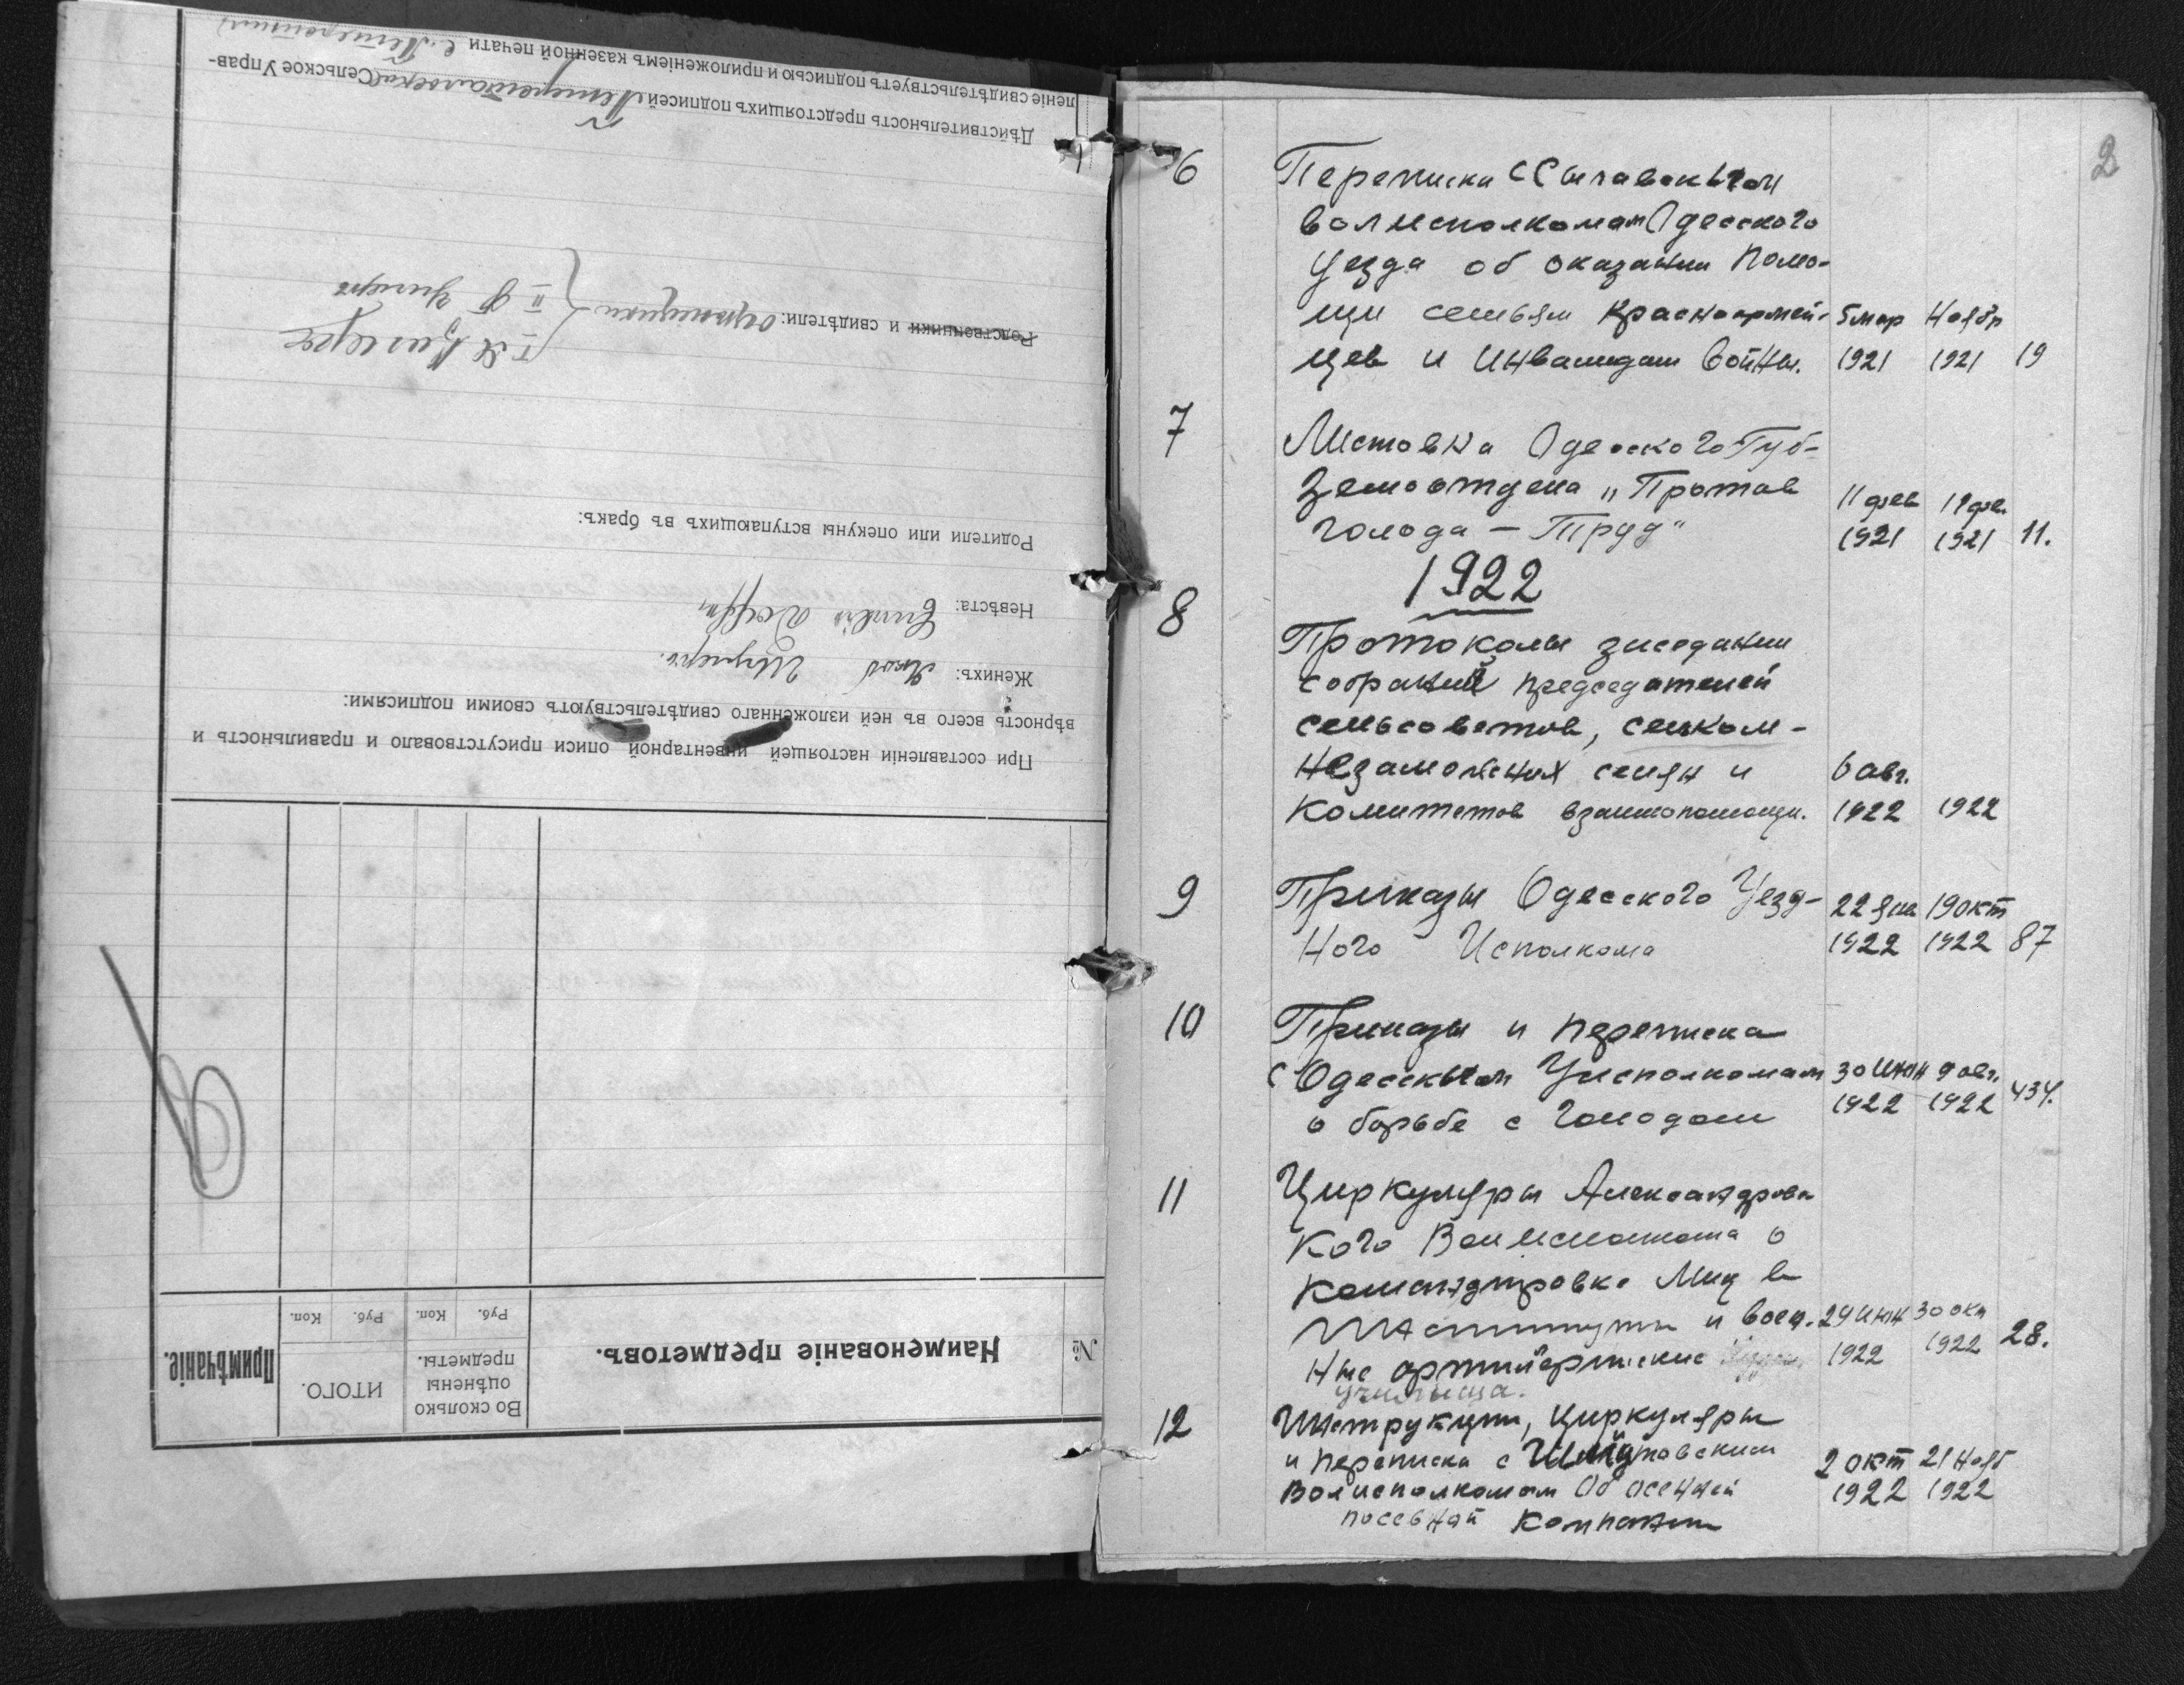 Дѣйствительность предстоящихъ подписей Сельское Управ-
леніе свидѣтельствуетъ подписью и приложеніемъ казенной печати
Родственники и свидѣтели:
I
II
Родители или опекуны вступающихъ въ бракъ:
Невѣста:
Женихъ:
При составленіи настоящей инвентарной описи присутствовало и правильность и
вѣрность всего въ ней изложеннаго свидѣтельствуютъ своими подписями:
№
Наименованіе предметовъ.
Во сколько
оцѣнены
предметы.
ИТОГО.
Примѣчаніе.
Руб. Коп. Руб. Коп.
2
6 Переписка с
волисполкомом Одесского
Уезда об оказании помо-
щи семьям красноармей- 5 мар Ноябр
цев и инвалидам войны. 1921 1921 19
7 Листовка Одесского Губ-
Земотдела „Против 11 фев 11 фев.
голода — Труд“ 1921 1921 11.
1922
8 Протоколы заседании
собраний председателей
сельсоветов,
незаможних селян и 6 авг.
комитетов взаимопомощи. 1922 1922
9 Приказы Одесского Уезд- 22 янв 19 окт
ного Исполкома 1922 1922 87
10 Приказы и переписка
с Одесским Уисполкомом 30 июн 9 авг.
о борьбе с голодом 1922 1922 434.
11 Циркуляры Александровс
кого Волисполкома о
командировке лиц в
институты и воен. 29 июн 30 окт
ные артиллерийские 1922 1922 28.
училища.
12 Инструкции, циркуляры
и переписка с 2 окт 21 нояб
Волисполкомом об осенней 1922 1922
посевной компании